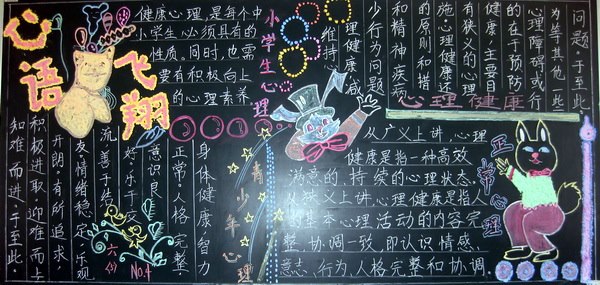 心语飞翔
健康心理,是每个中
小学生必须具有的
性质。同时,也需
要有积极向上
的心理素养
小学生心理
问题,于至此
为等其他一些
心理障碍或行
的在于预防
健康主要目
有狭义的心理
施。心理健康还
的原则和措
和精神疾病
少行为问题
理健康,减
维持心
心理健康
从广义上讲,心理
健康是指一种高效
满意的、持续的心理状态。
从狭义上讲,心理健康是指人
的基本心理活动的内容完
整、协调一致,即认识、情感、
意志、行为、人格完整和协调。
正常心理
青少年心理
身体健康,智力
正常。人格完整
意识良
好,乐于交
流,善于结
友。情绪稳定,乐观
开朗。有所追求,
积极进取。迎难而上
知难而进,于至此。
No.4